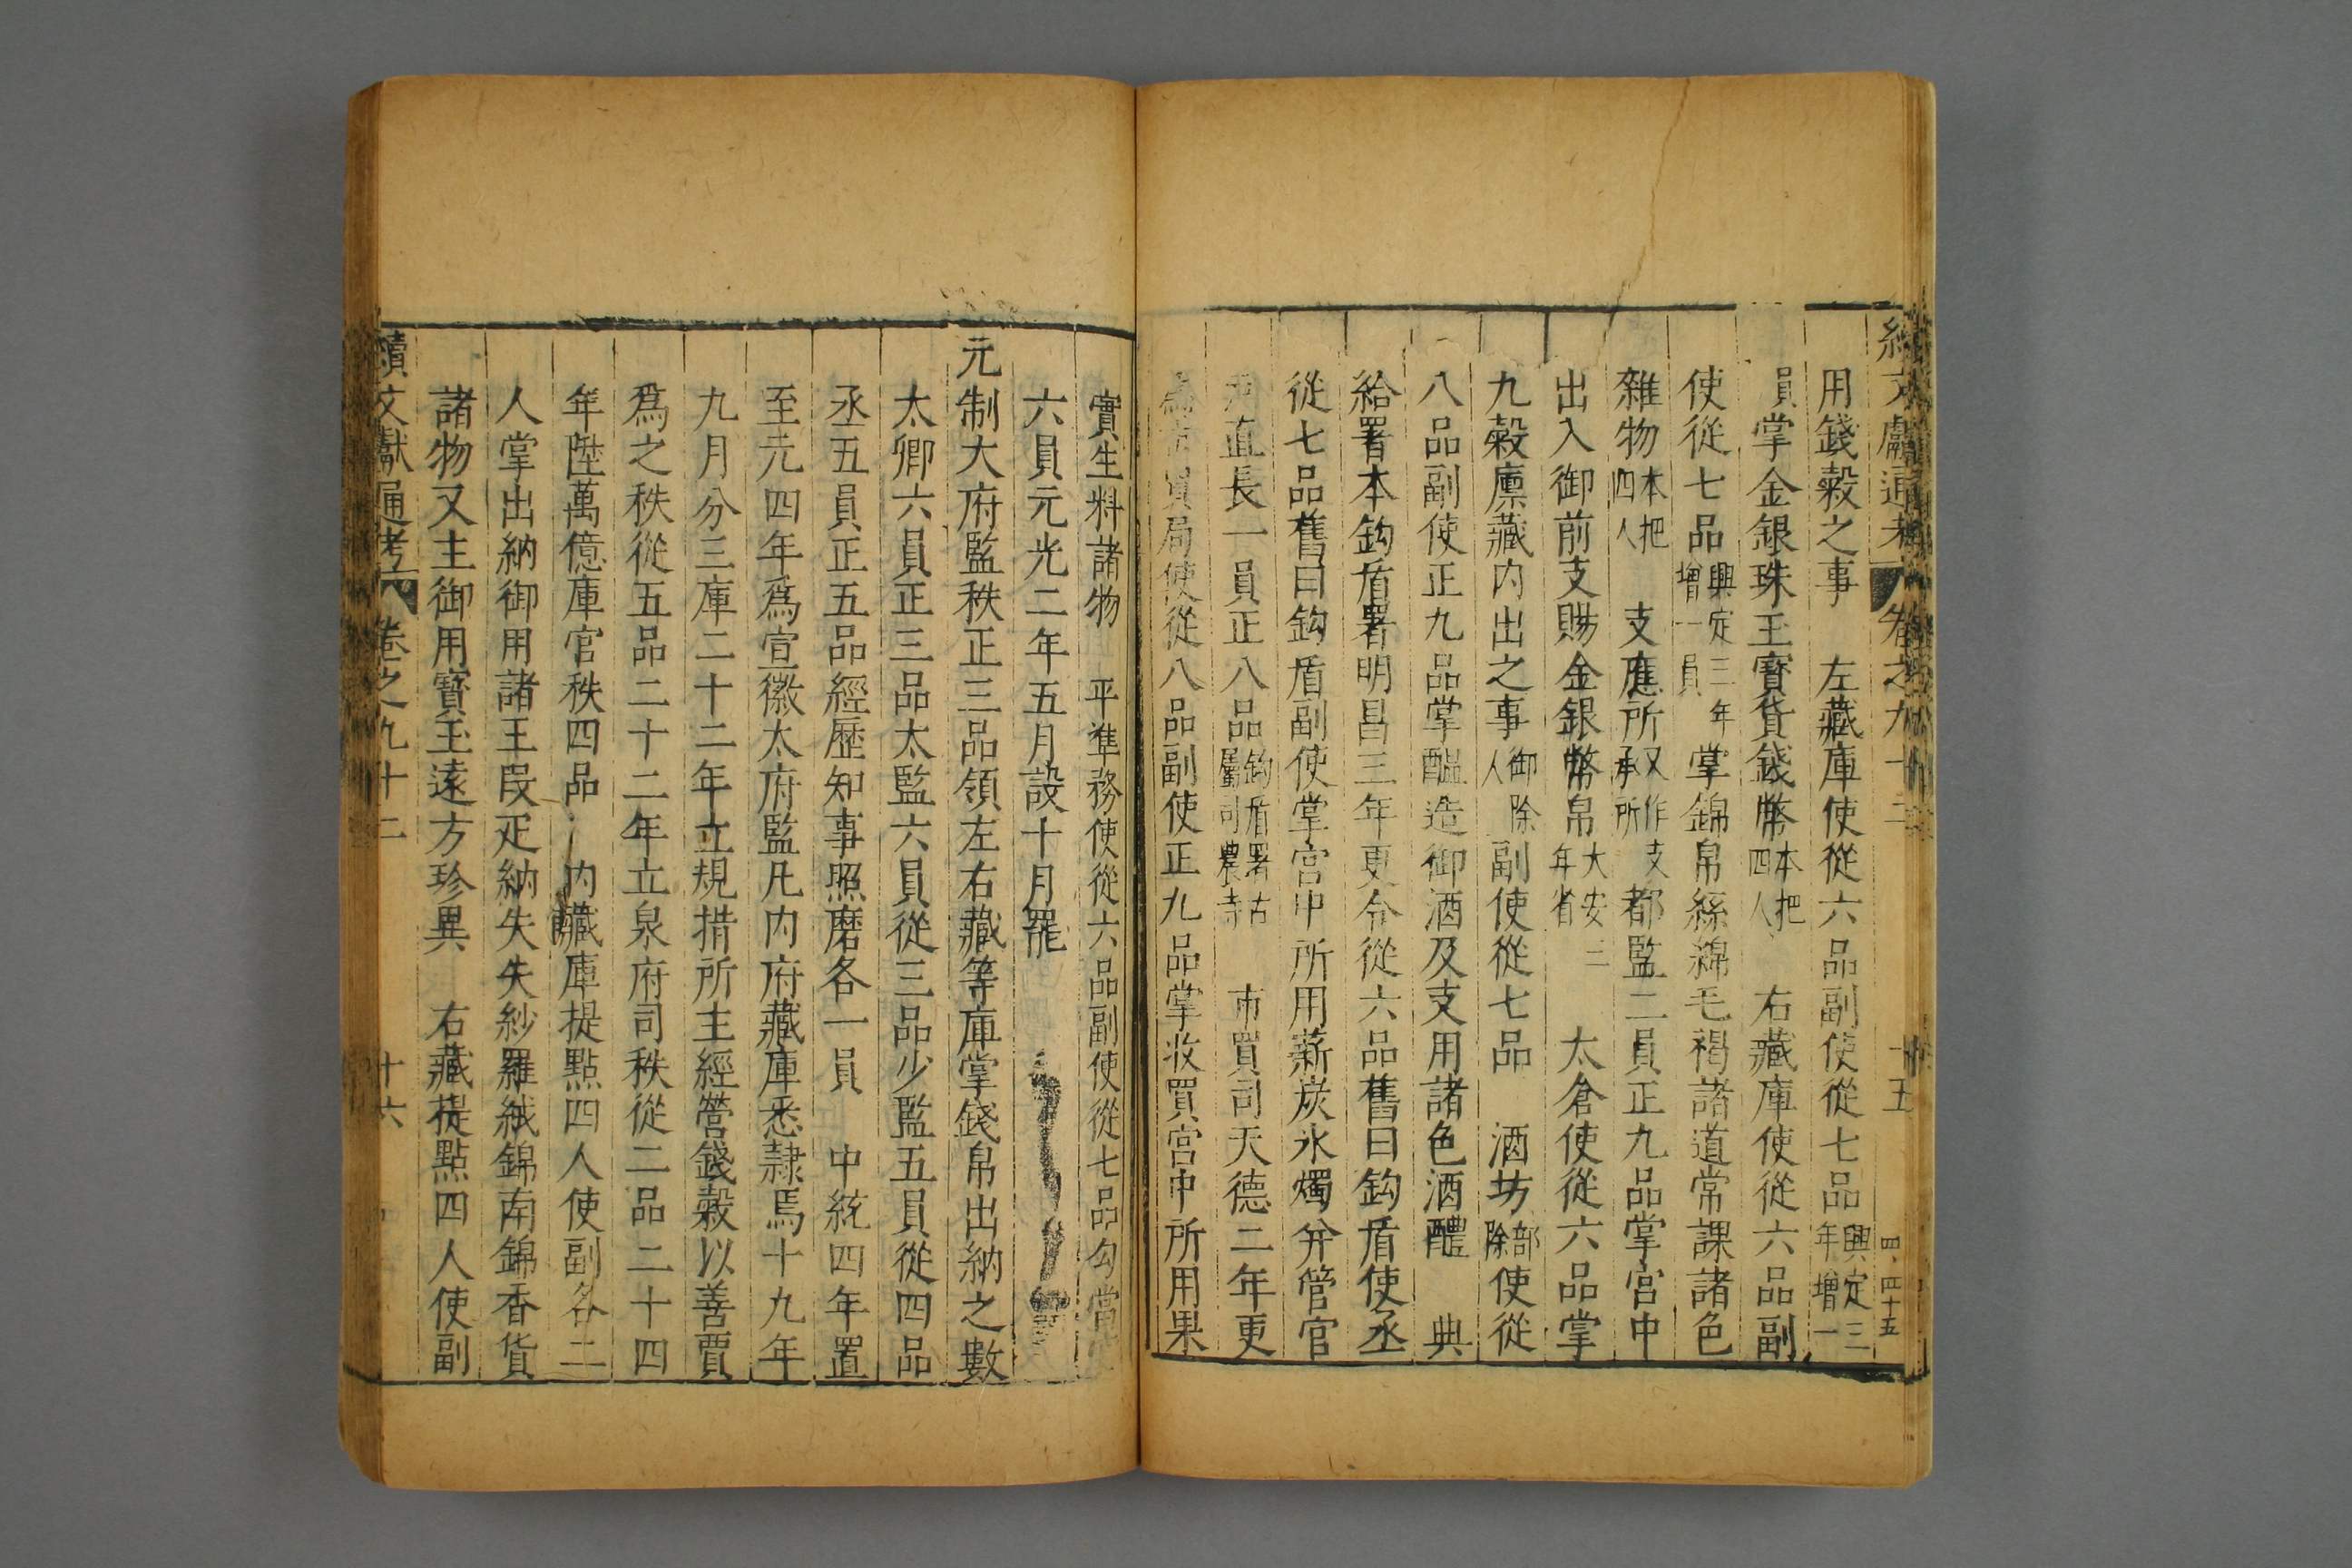 續文獻通考 卷之九十二 十五 四四十五
用錢穀之事 左藏庫使從六品副使從七品興定三年增一
員掌金銀珠玉寶貨錢幣本把四人 右藏庫使從六品副
使從七品興定三年增一員 掌錦帛絲綿毛褐諸道常課諸色
雜物本把四人 支應所又作支承所 都監二員正九品掌宮中
出入御前支賜金銀幣帛大安二年省 太倉使從六品掌
九穀廩藏內出之事御除人 副使從七品 酒坊部除使從
八品副使正九品掌醞造御酒及支用諸色酒醴 典
給署本鈎盾署明昌三年更令從六品舊曰鈎盾使丞
從七品舊曰鈎盾副使掌宮中所用薪炭氷燭并管官
直長一員正八品鈎盾署古屬司農寺 市買司天德二年更
買局使從八品副使正九品掌收買宮中所用果
實生料諸物 平準務使從六品副使從七品勾當官
六員元光二年五月設十月罷
元制大府監秩正三品領左右藏等庫掌錢帛出納之數
太卿六員正三品太監六員從三品少監五員從四品
丞五員正五品經歷知事照磨各一員 中統四年置
至元四年爲宣徽太府監凡内府藏庫悉隷焉十九年
九月分三庫二十二年立規措所主經營錢穀以善賈
爲之秩從五品二十二年立泉府司秩從二品二十四
年陞萬億庫官秩四品 内藏庫提點四人使副各二
人掌出納御用諸王叚疋納失失紗羅絨錦南錦香貨
諸物又主御用寶玉遠方珍異 右藏提點四人使副
續文獻通考 卷之九十二 十六